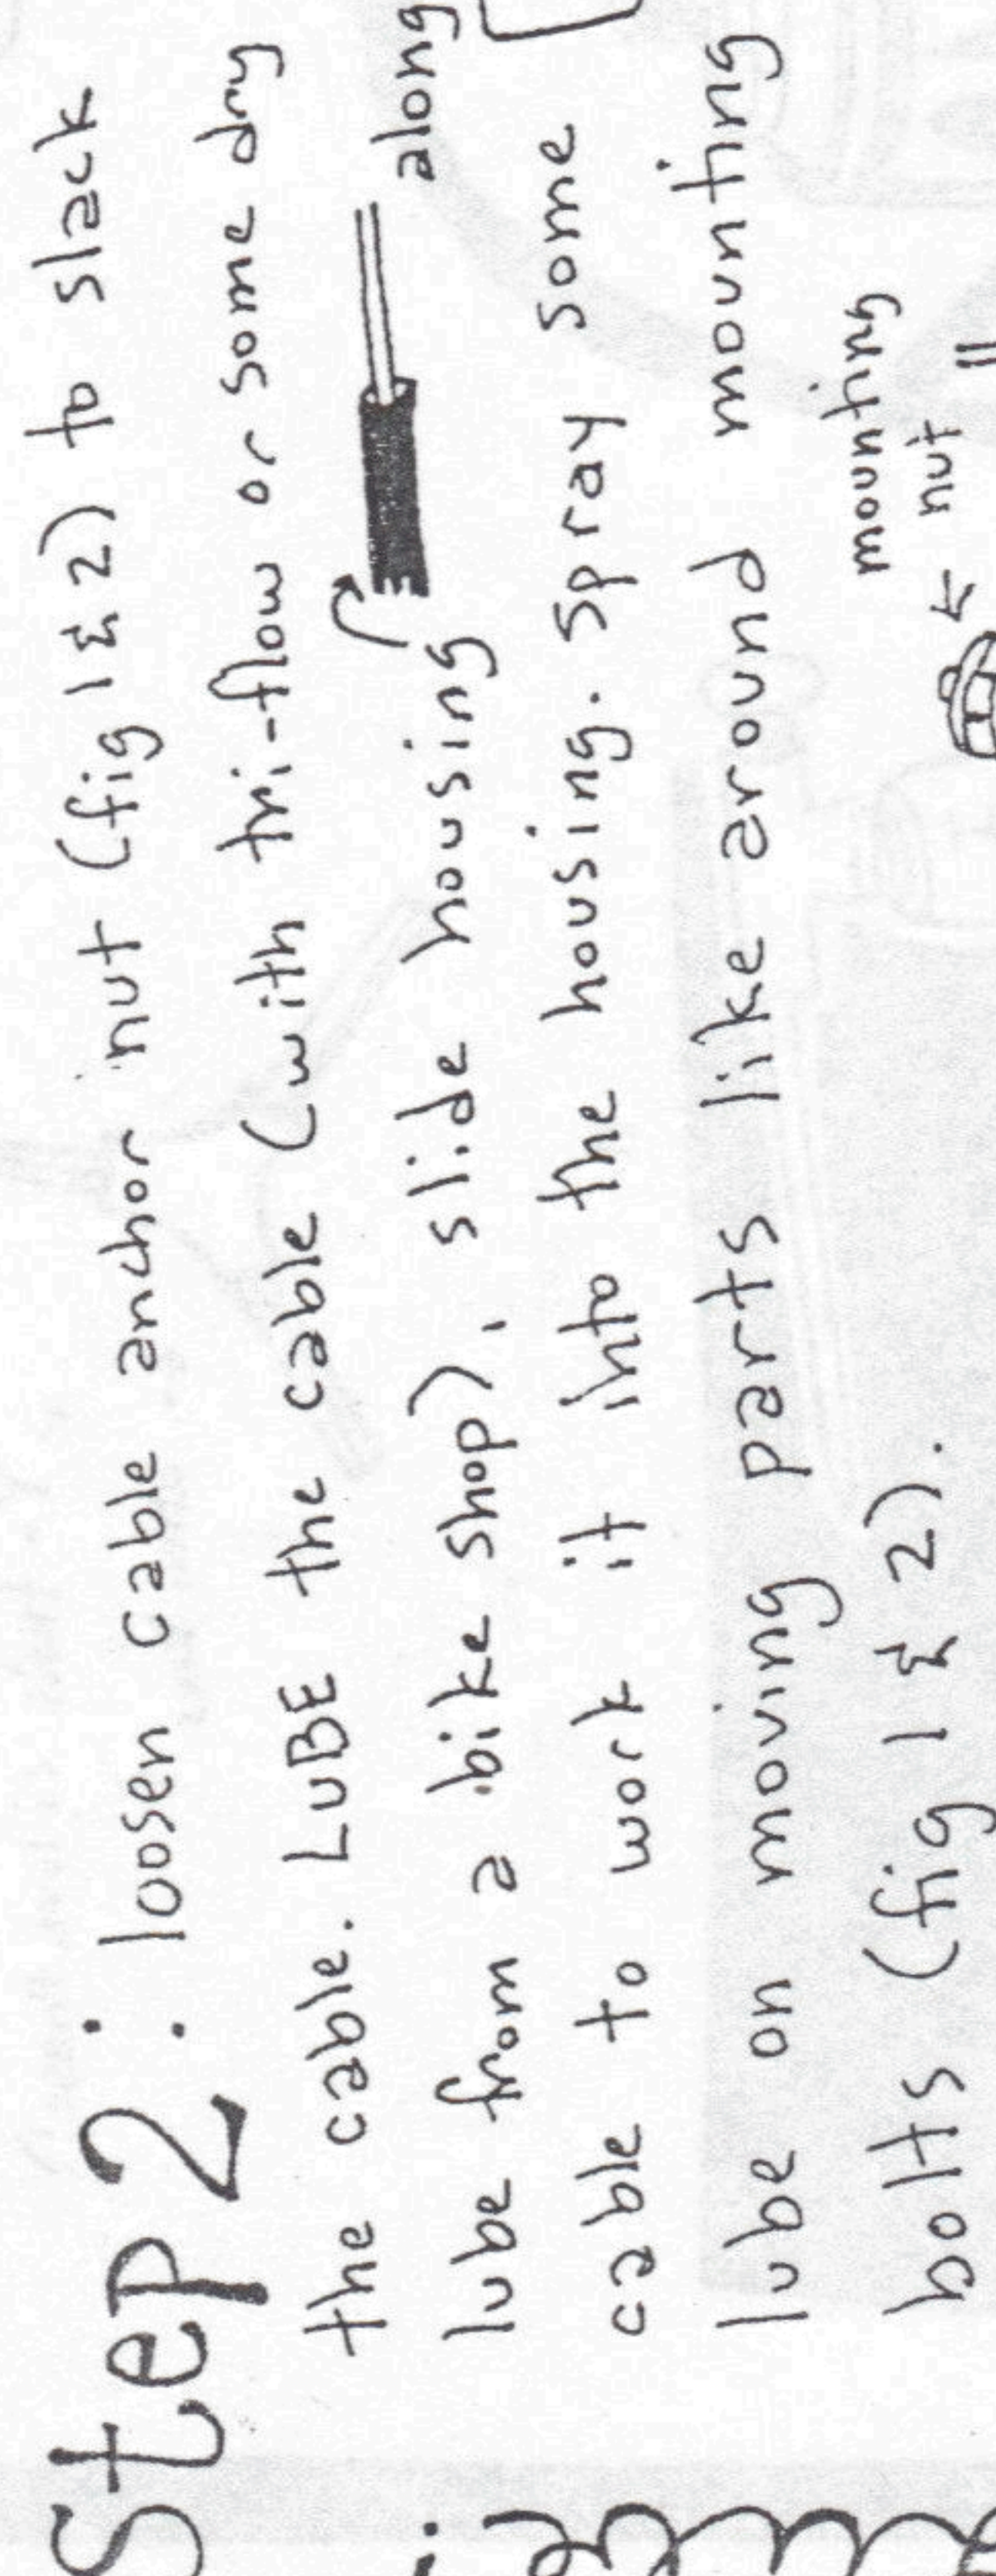 Step 2: loosen cable anchor nut (fig 1 & 2) to slack
the cable. LUBE the cable (with tri-flow or some dry
lube from a bike shop), slide housing along
cable to work it into the housing. Spray some
lube on moving parts like around mounting
bolts (fig 1 & 2).
mounting
nut